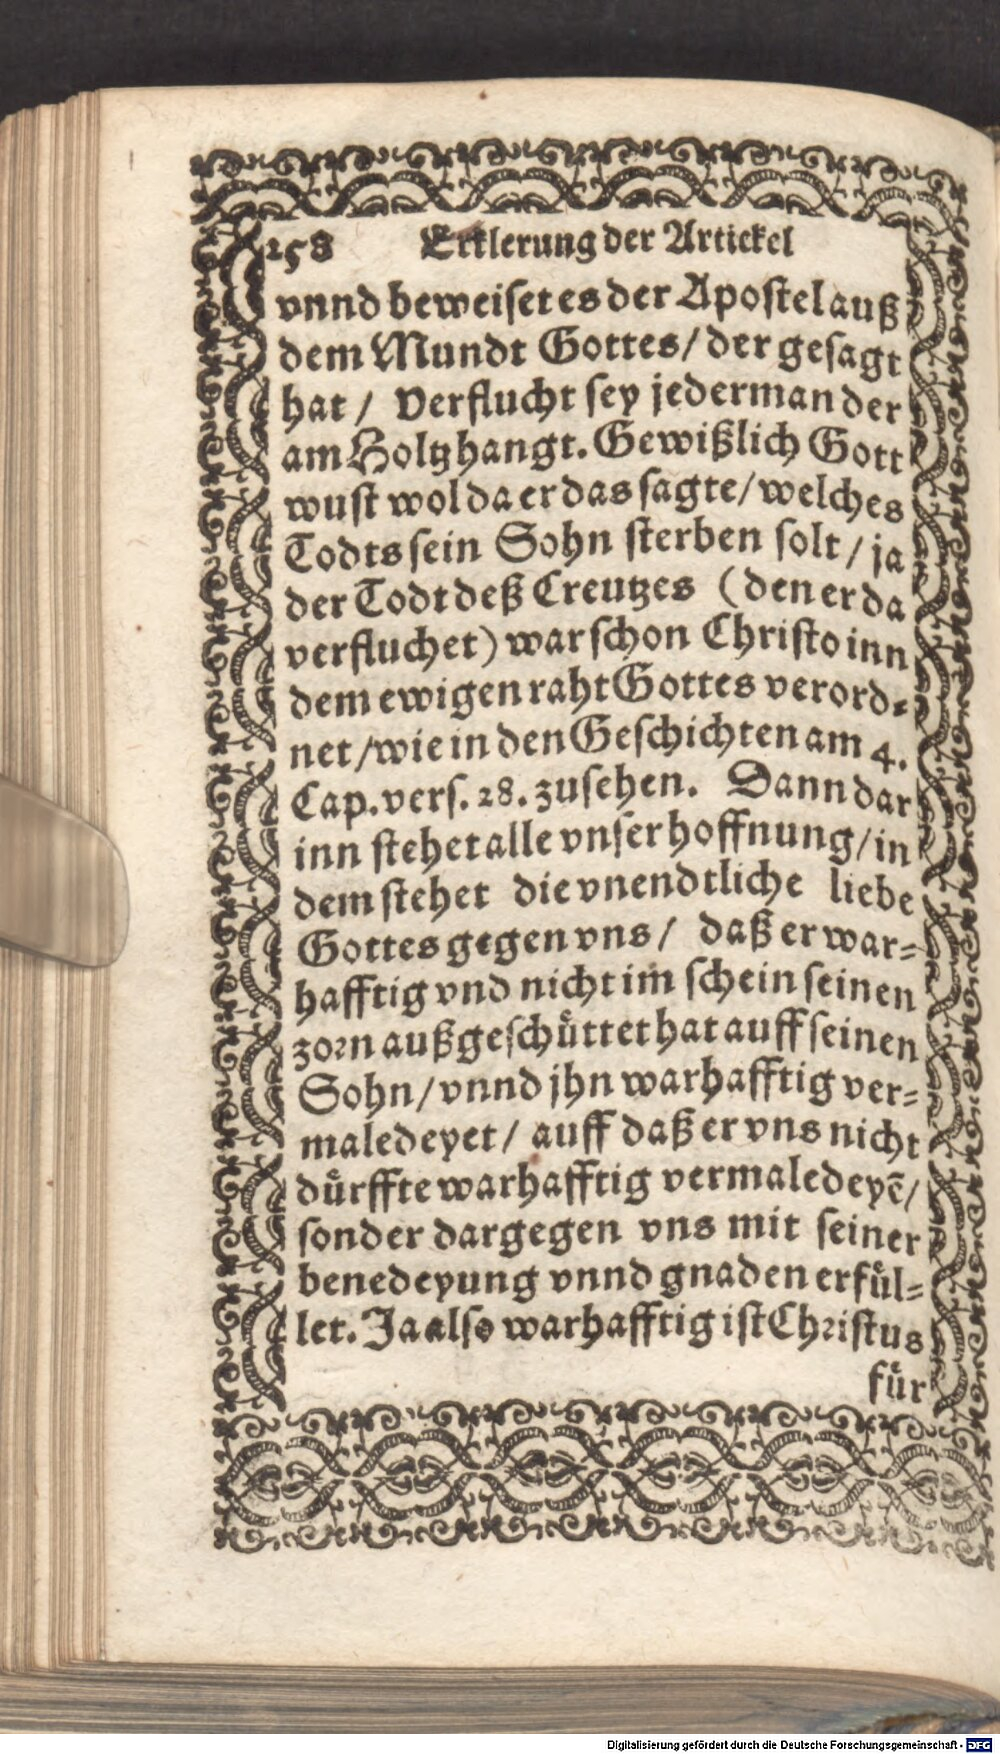 258 Erklerung der Artickel
vnnd beweiset es der Apostel auß
dem Mundt Gottes/ der gesagt
hat/ Verflucht sey jederman der
am Holtz hangt. Gewißlich Gott
wust wol da er das sagte/ welches
Todts sein Sohn sterben solt/ ja
der Todt deß Creutzes (den er da
verfluchet) war schon Christo inn
dem ewigen raht Gottes verord-
net/ wie in den Geschichten am 4.
Cap. vers. 28. zusehen. Dann dar
inn stehet alle vnser hoffnung/ in
dem stehet die vnendtliche liebe
Gottes gegen vns/ daß er war-
hafftig vnd nicht im schein seinen
zorn außgeschüttet hat auff seinen
Sohn/ vnnd jhn warhafftig ver-
maledeyet/ auff daß er vns nicht
dürffte warhafftig vermaledeyē/
sonder dargegen vns mit seiner
benedeyung vnnd gnaden erfül-
let. Ja also warhafftig ist Christus
für
Digitalisierung gefördert durch die Deutsche Forschungsgemeinschaft - DFG